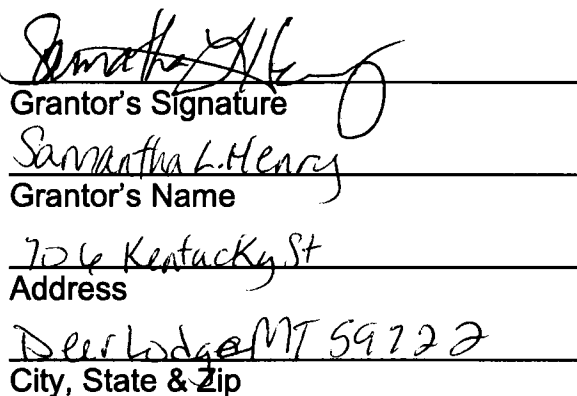 Samantha L Henry
Grantor's Signature
Samantha L. Henry
Grantor's Name
706 Kentucky St
Address
Deer Lodge MT 59722
City, State & Zip